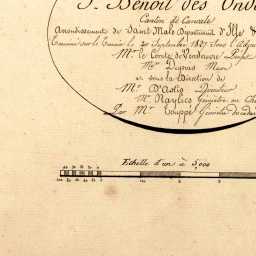 St. Benoit des Ond
Canton de Cancale
Arrondissement de Saint Malo Département d'Ille &
Terminé sur le Terrain le 20 Septembre 1827 Sous l'Ad
Mr. le Comte de Vendeuvre Préfet
Mr. Dupuis Maire
& sous la Direction de
Mr. D'Astis Directeur
Mr. Naylies Géomètre en Ch
Par Mr. Couppé Géomètre du cada
Echelle d'un à 5,000